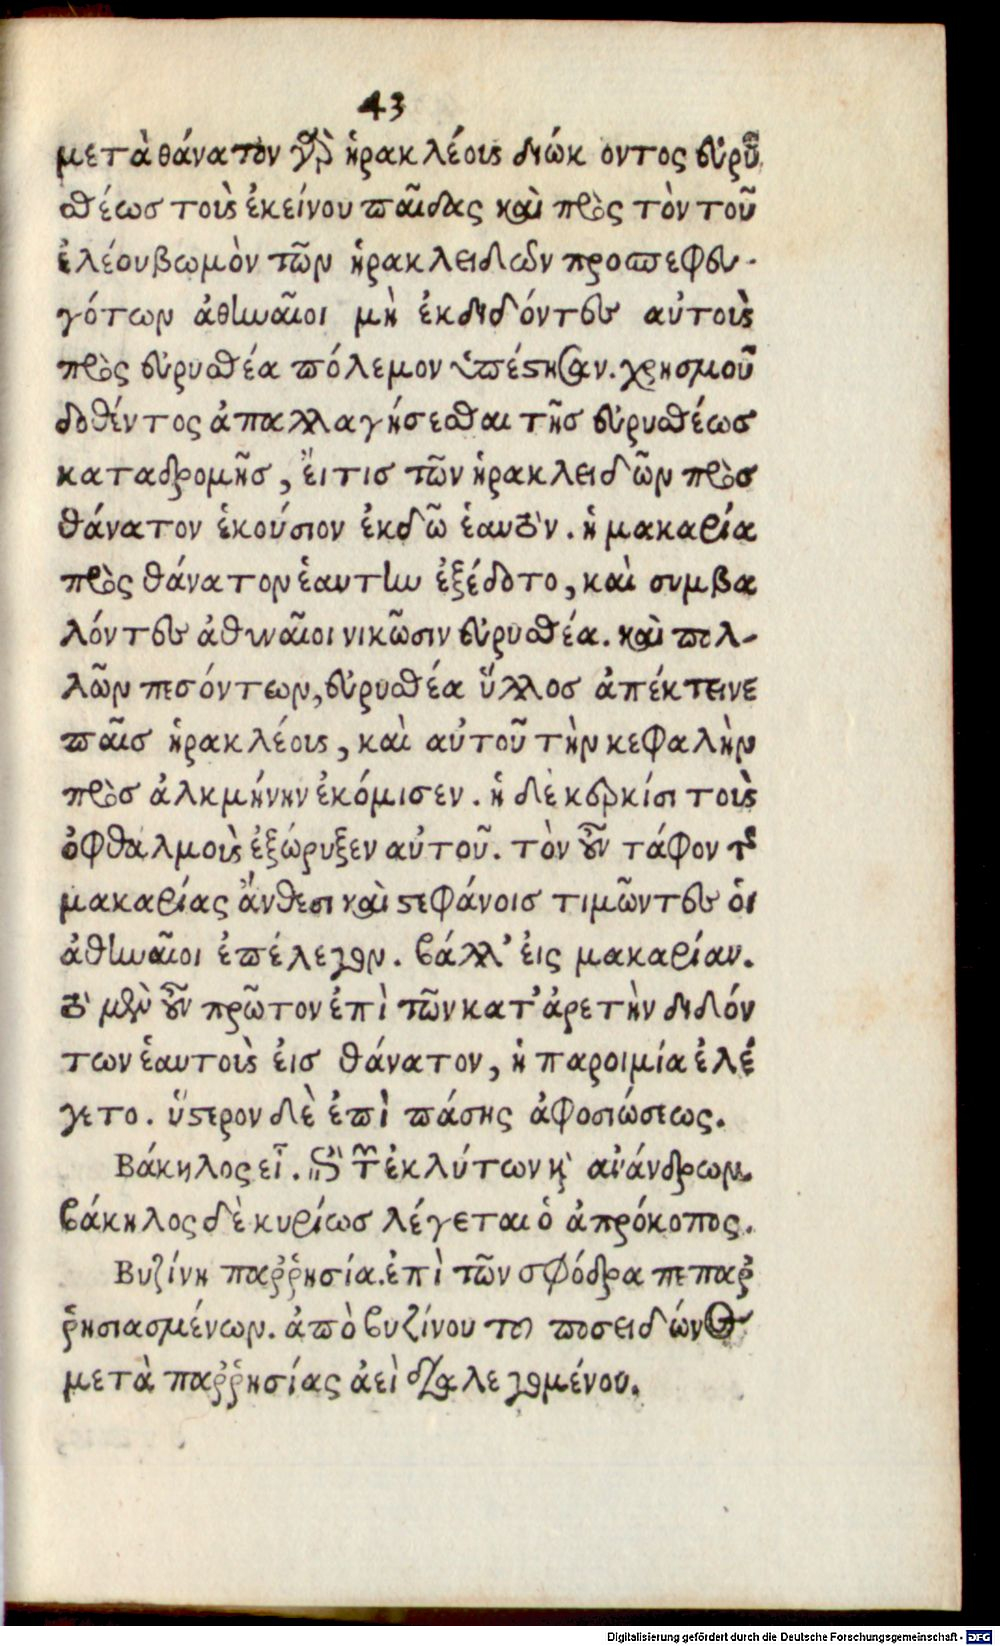 43
μετὰ θάνατον γὰρ ἡρακλέους διώκοντος εὐρυ
σθέως τοὺς ἐκείνου παῖδας καὶ πρὸς τὸν τοῦ
ἐλέου βωμὸν τῶν ἡρακλειδῶν προσπεφευ-
γότων ἀθηναῖοι μὴ ἐκδιδόντες αὐτοὺς
πρὸς εὐρυσθέα πόλεμον ὑπέστησαν. χρησμοῦ
δοθέντος ἀπαλλαγήσεσθαι τῆς εὐρυσθέως
καταδρομῆς, ἔι τις τῶν ἡρακλειδῶν πρὸς
θάνατον ἑκούσιον ἐκδῶ ἑαυτὸν. ἡ μακαρία
πρὸς θάνατον ἑαυτὴν ἐξέδοτο, καὶ συμβα
λόντες ἀθηναῖοι νικῶσιν εὐρυσθέα. καὶ πολ-
λῶν πεσόντων, εὐρυσθέα ὕλλος ἀπέκτεινε
παῖς ἡρακλέους, καὶ αὐτοῦ τὴν κεφαλὴν
πρὸς ἀλκμήνην ἐκόμισεν. ἡ δὲ κερκίσι τοὺς
ὀφθαλμοὺς ἐξώρυξεν αὐτοῦ. τὸν οὖν τάφον τῆς
μακαρίας ἄνθεσι καὶ στεφάνοις τιμῶντες ὁι
ἀθηναῖοι ἐπέλεγον. βάλλ' ἐις μακαρίαν.
τὸ μὲν οὖν πρῶτον ἐπὶ τῶν κατ' ἀρετὴν διδόν
των ἑαυτοὺς ἐις θάνατον, ἡ παροιμία ἐλέ
γετο. ὕστερον δὲ ἐπὶ πάσης ἀφοσιώσεως.
Βάκηλος εἶ. ἐπὶ τῶν ἐκλύτων καὶ ἀνάνδρων.
βάκηλος δὲ κυρίως λέγεται ὁ ἀπρόκοπος.
Βυζίνη παῤῥησία. ἐπὶ τῶν σφόδρα πεπαῤ
ῥησιασμένων. ἀπὸ βυζίνου τοῦ ποσειδῶνος
μετὰ παῤῥησίας ἀεὶ διαλεγομένου.
Digitalisierung gefördert durch die Deutsche Forschungsgemeinschaft - DFG